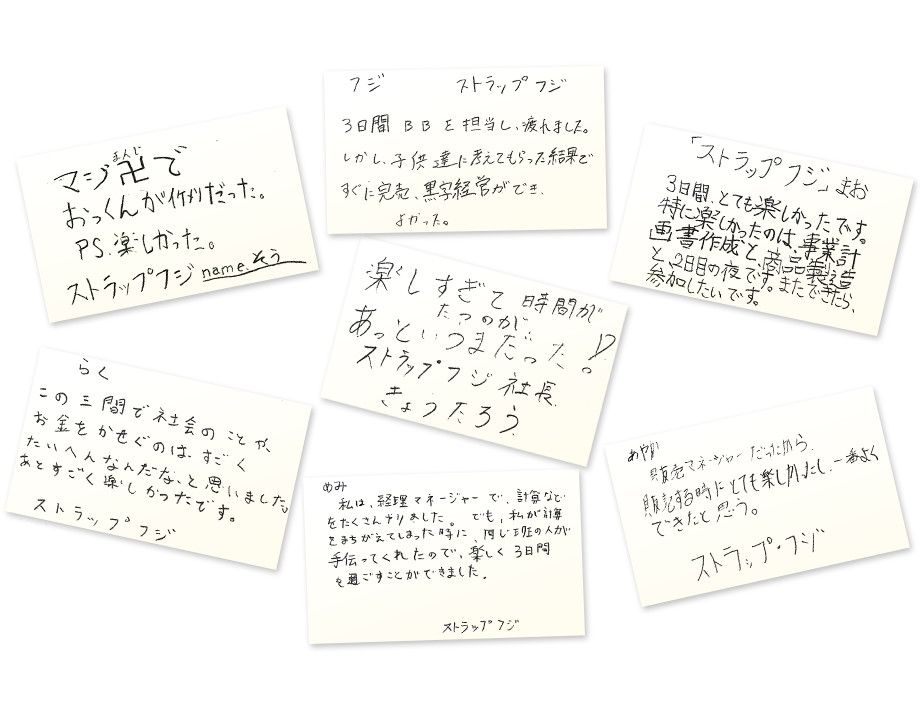 フジ　ストラップフジ
3日間 BB を担当し、疲れました。
しかし、子供達に考えてもらった結果で
すぐに完売、黒字経営ができ、
よかった。
まんじ
マジ卍で
おっくんがイケメンだった。
PS.楽しかった。
ストラップフジ name.そう
「ストラップフジ」まお
3日間、とても楽しかったです。
特に楽しかったのは、事業計
画書作成と、商品製造
と、2日目の夜です。またできたら、
参加したいです。
楽しすぎて時間が
たつのが、
あっというまだった!?。
ストラップフジ社長、
きょうたろう、
らく
この三間で社会のことや、
お金をかせぐのは、すごく
たいへんなんだな、と思いました。
あとすごく楽しかったです。
ストラップフジ
めみ
私は、経理マネージャーで、計算など
をたくさんやりました。でも、私が計算
をまちがえてしまった時に、同じ班の人が
手伝ってくれたので、楽しく3日間
を過ごすことができました。
ストラップフジ
あやか
販売マネージャーだったから、
販売する時にとても楽しかったし、一番よく
できたと思う。
ストラップ・フジ